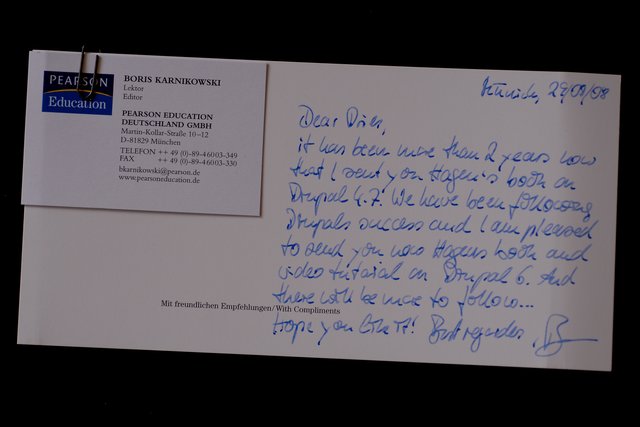 PEARSON
Education
BORIS KARNIKOWSKI
Lektor
Editor
PEARSON EDUCATION
DEUTSCHLAND GMBH
Martin-Kollar-Straße 10–12
D-81829 München
TELEFON ++ 49 (0)-89-46003-349
FAX ++ 49 (0)-89-46003-330
bkarnikowski@pearson.de
www.pearsoneducation.de
Munich, 29/09/08
Dear Dries,
it has been more than 2 years now
that I sent you Hagen's book on
Drupal 4.7. We have been following
Drupals success and I am pleased
to send you now Hagens book and
video tutorial on Drupal 6. And
there will be more to follow...
Mit freundlichen Empfehlungen/With Compliments
Hope you like it! Best regards,